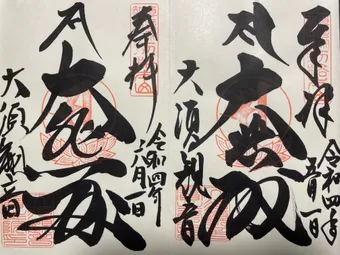 奉拝
令和四年
五月一日
大悲殿
大須観音
奉拝
令和四年
六月一日
大悲殿
大須観音